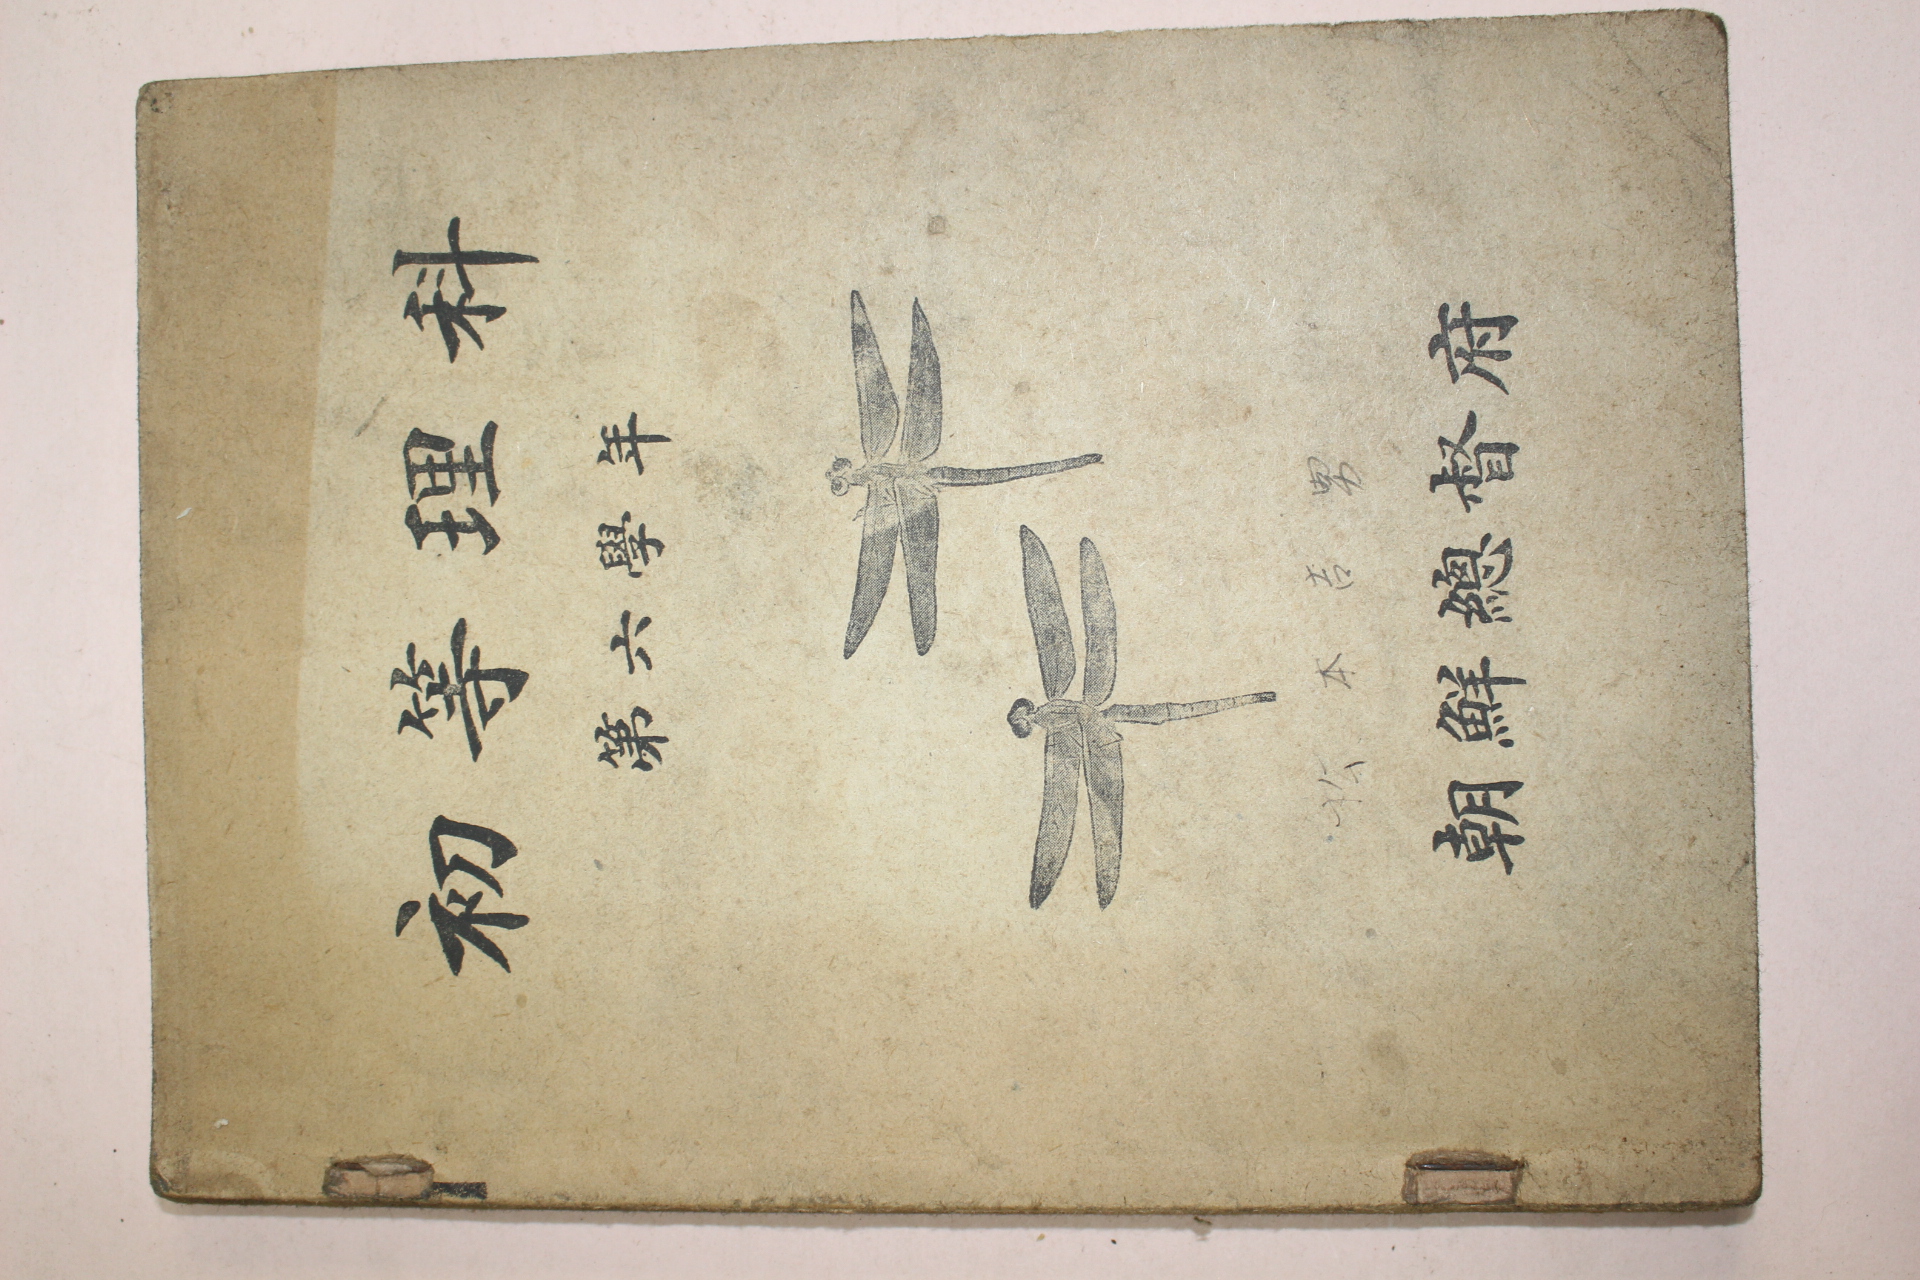 初等理科
第六學年
松本吉男
朝鮮總督府